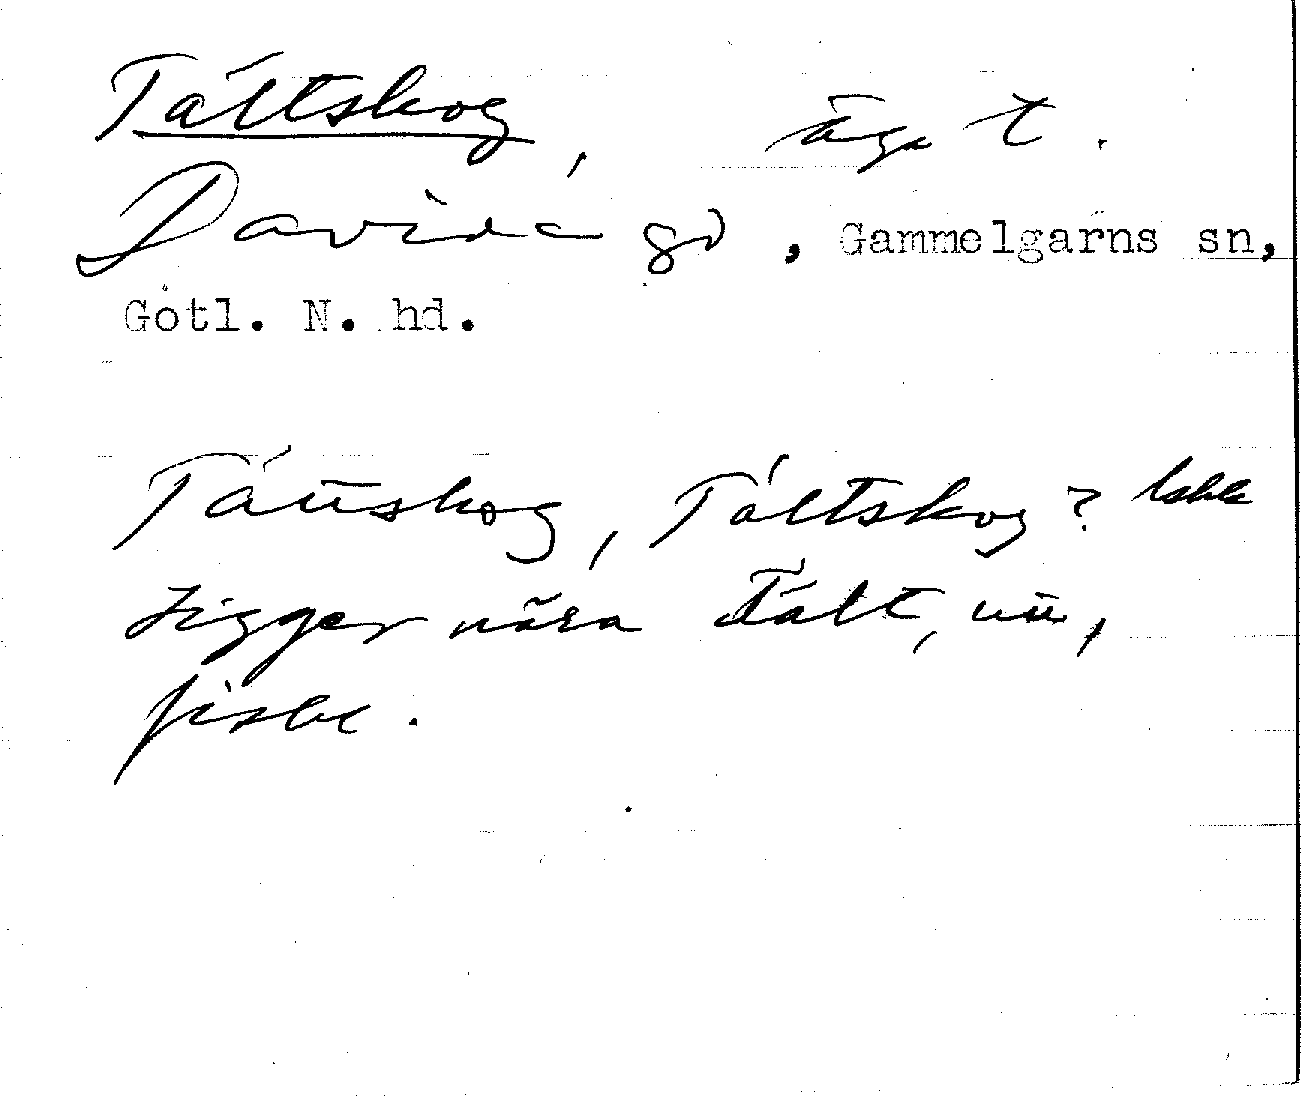 Tåltskog, äga t.
Davide gd, Gammelgarns sn,
Gotl. N. hd.
Tåuskog, Tåltskog?
Ligger nära Tält, nu,
fiske.